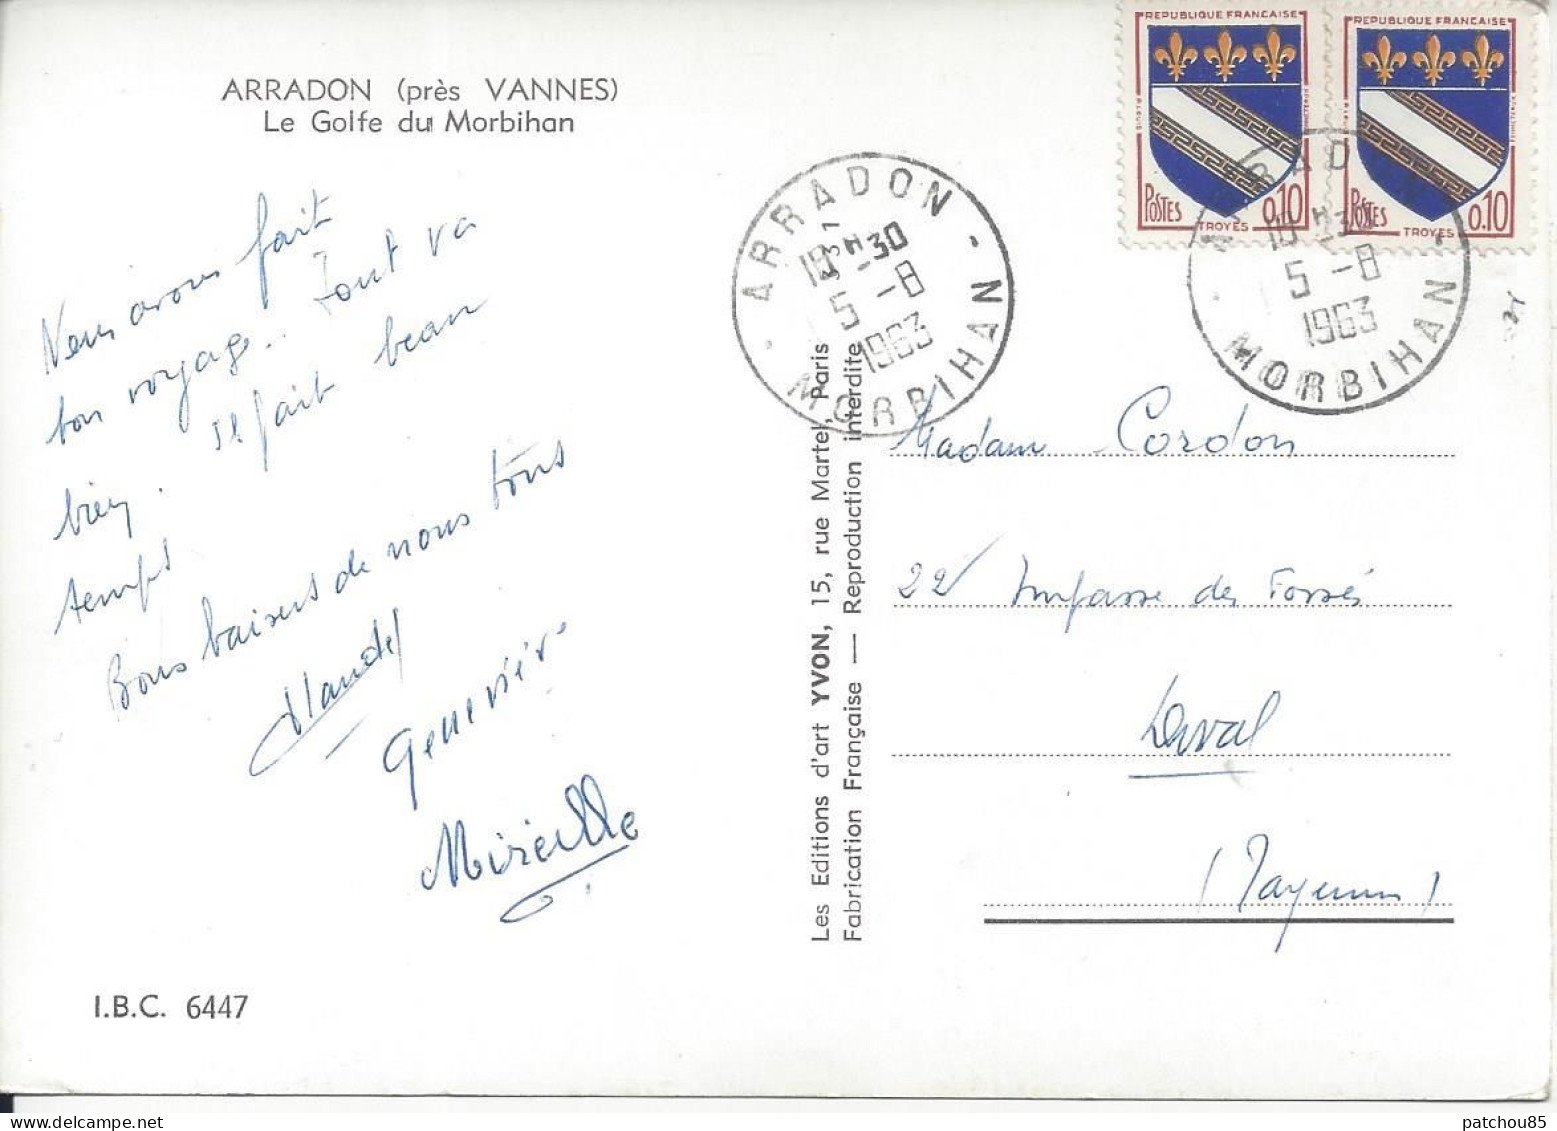 ARRADON (près VANNES)
Le Golfe du Morbihan
Nous avons fait
bon voyage.. Tout va
bien. Il fait beau
temps
Bons baisers de nous tous
Geneviève
Mireille
I.B.C. 6447
Les Editions d'art YVON, 15, rue Martel, Paris
Fabrication Française — Reproduction interdite
ARRADON
18H-30
5-8
1963
MORBIHAN
REPUBLIQUE FRANÇAISE
POSTES
0,10
TROYES
REPUBLIQUE FRANÇAISE
POSTES
0,10
TROYES
ARRADON
18H-30
5-8
1963
MORBIHAN
Madam Cordon
22 Impasse des Fossés
Laval
(Mayenne)
patchou85